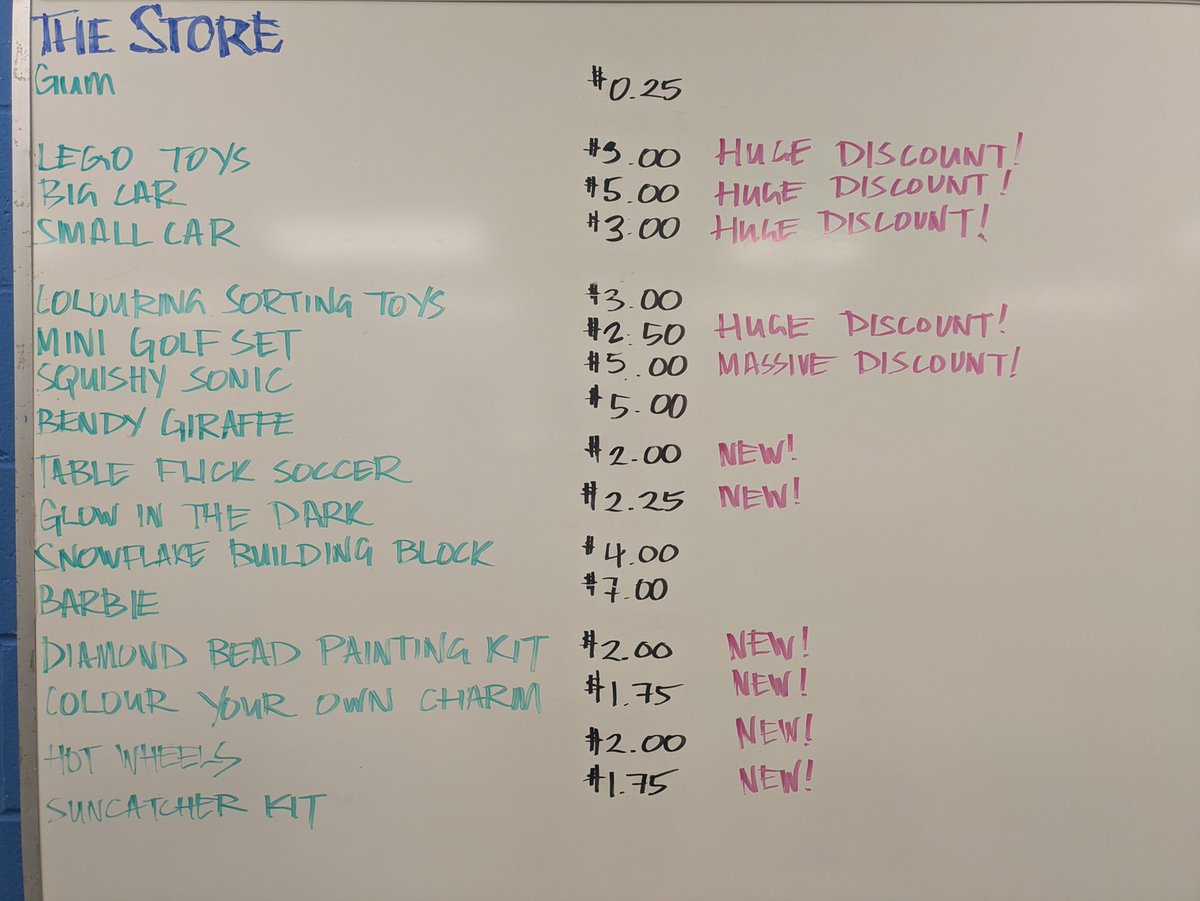 THE STORE
Gum $0.25
LEGO TOYS $3.00 HUGE DISCOUNT!
BIG CAR $5.00 HUGE DISCOUNT!
SMALL CAR $3.00 HUGE DISCOUNT!
COLOURING SORTING TOYS $3.00
MINI GOLF SET $2.50 HUGE DISCOUNT!
SQUISHY SONIC $5.00 MASSIVE DISCOUNT!
BENDY GIRAFFE $5.00
TABLE FLICK SOCCER $2.00 NEW!
GLOW IN THE DARK $2.25 NEW!
SNOWFLAKE BUILDING BLOCK $4.00
BARBIE $7.00
DIAMOND BEAD PAINTING KIT $2.00 NEW!
COLOUR YOUR OWN CHARM $1.75 NEW!
HOT WHEELS $2.00 NEW!
SUNCATCHER KIT $1.75 NEW!